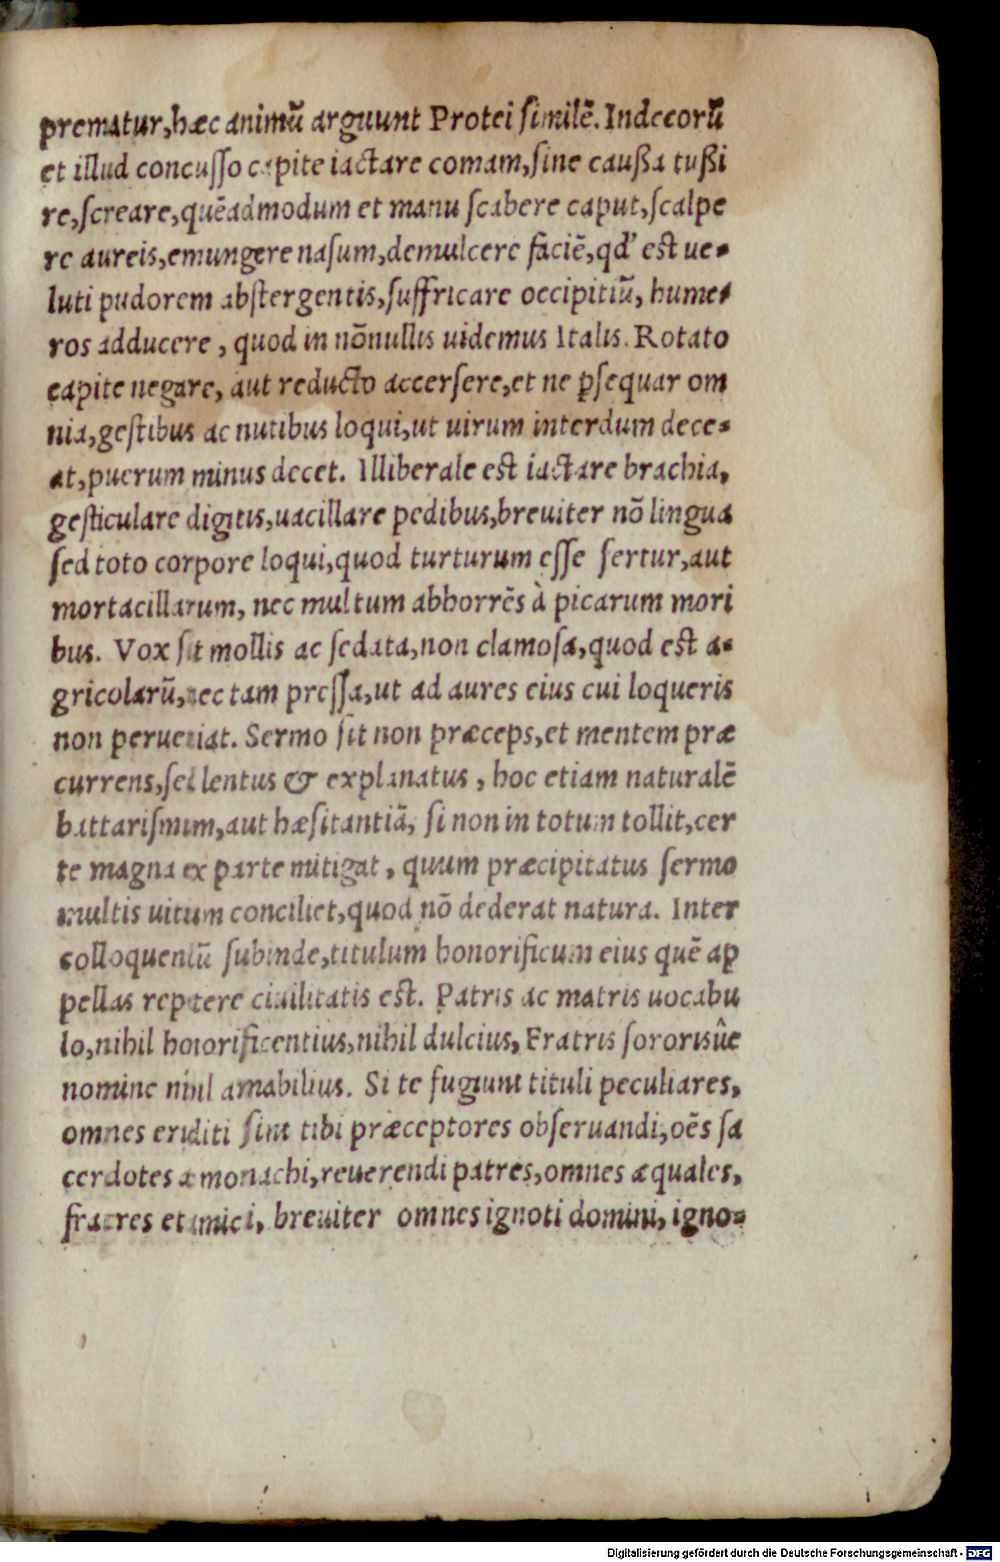 prematur,hæc animū arguunt Protei similē. Indecorū
et illud concusso capite iactare comam, sine caußa tußi
re, screare, quēadmodum et manu scabere caput, scalpe
re aureis, emungere nasum, demulcere faciē, qd' est ue-
luti pudorem abstergentis, suffricare occipitiū, hume-
ros adducere, quod in nōnullis uidemus Italis. Rotato
capite negare, aut reducto accersere, et ne ꝑsequar om
nia, gestibus ac nutibus loqui, ut uirum interdum dece-
at, puerum minus decet. Illiberale est iactare brachia,
gesticulare digitis, uacillare pedibus, breuiter nō lingua
sed toto corpore loqui, quod turturum esse fertur, aut
mortacillarum, nec multum abhorrēs à picarum mori
bus. Vox sit mollis ac sedata, non clamosa, quod est a-
gricolarū, nec tam pressa, ut ad aures eius cui loqueris
non perueniat. Sermo sit non præceps, et mentem præ
currens, sed lentus & explanatus, hoc etiam naturalē
battarismum, aut hæsitantiā, si non in totum tollit, cer
te magna ex parte mitigat, quum præcipitatus sermo
multis uitium conciliet, quod nō dederat natura. Inter
colloquendū subinde, titulum honorificum eius quē ap
pellas repetere ciuilitatis est. Patris ac matris uocabu
lo, nihil honorificentius, nihil dulcius, Fratris sororisûe
nomine nihil amabilius. Si te fugiunt tituli peculiares,
omnes eruditi sint tibi præceptores obseruandi, oēs sa
cerdotes ac monachi, reuerendi patres, omnes æquales,
fratres et amici, breuiter omnes ignoti domini, igno-
Digitalisierung gefördert durch die Deutsche Forschungsgemeinschaft - DFG